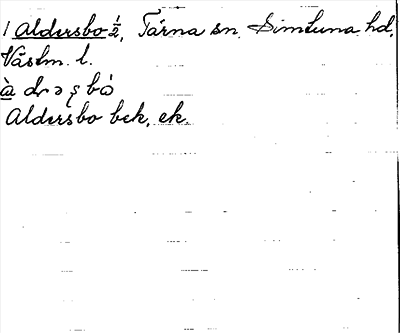 1 Aldersbo ½, Tärna sn. Simtuna hd,
Västm. l.
Aldersbo bek. ek.